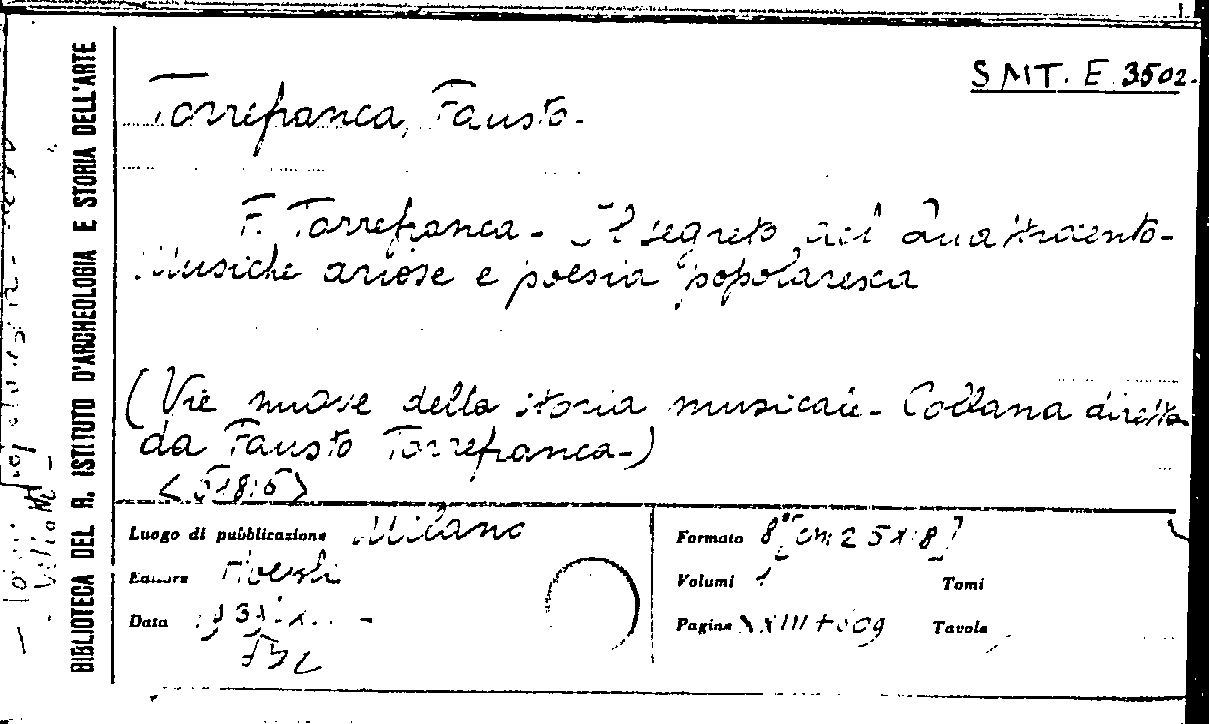 SMT. E 3502.
Torrefranca, Fausto.
F. Torrefranca - Il segreto del Quattrocento -
Musiche ariose e poesia popolaresca
(Vie nuove della storia musicale - Collana diretta
da Fausto Torrefranca -)
Luogo di pubblicazione Milano
Editore Hoepli
Data
Formato 8° [cm 25x18]
Volumi 1 Tomi
Pagine Tavole
BIBLIOTECA DEL R. ISTITUTO D'ARCHEOLOGIA E STORIA DELL'ARTE